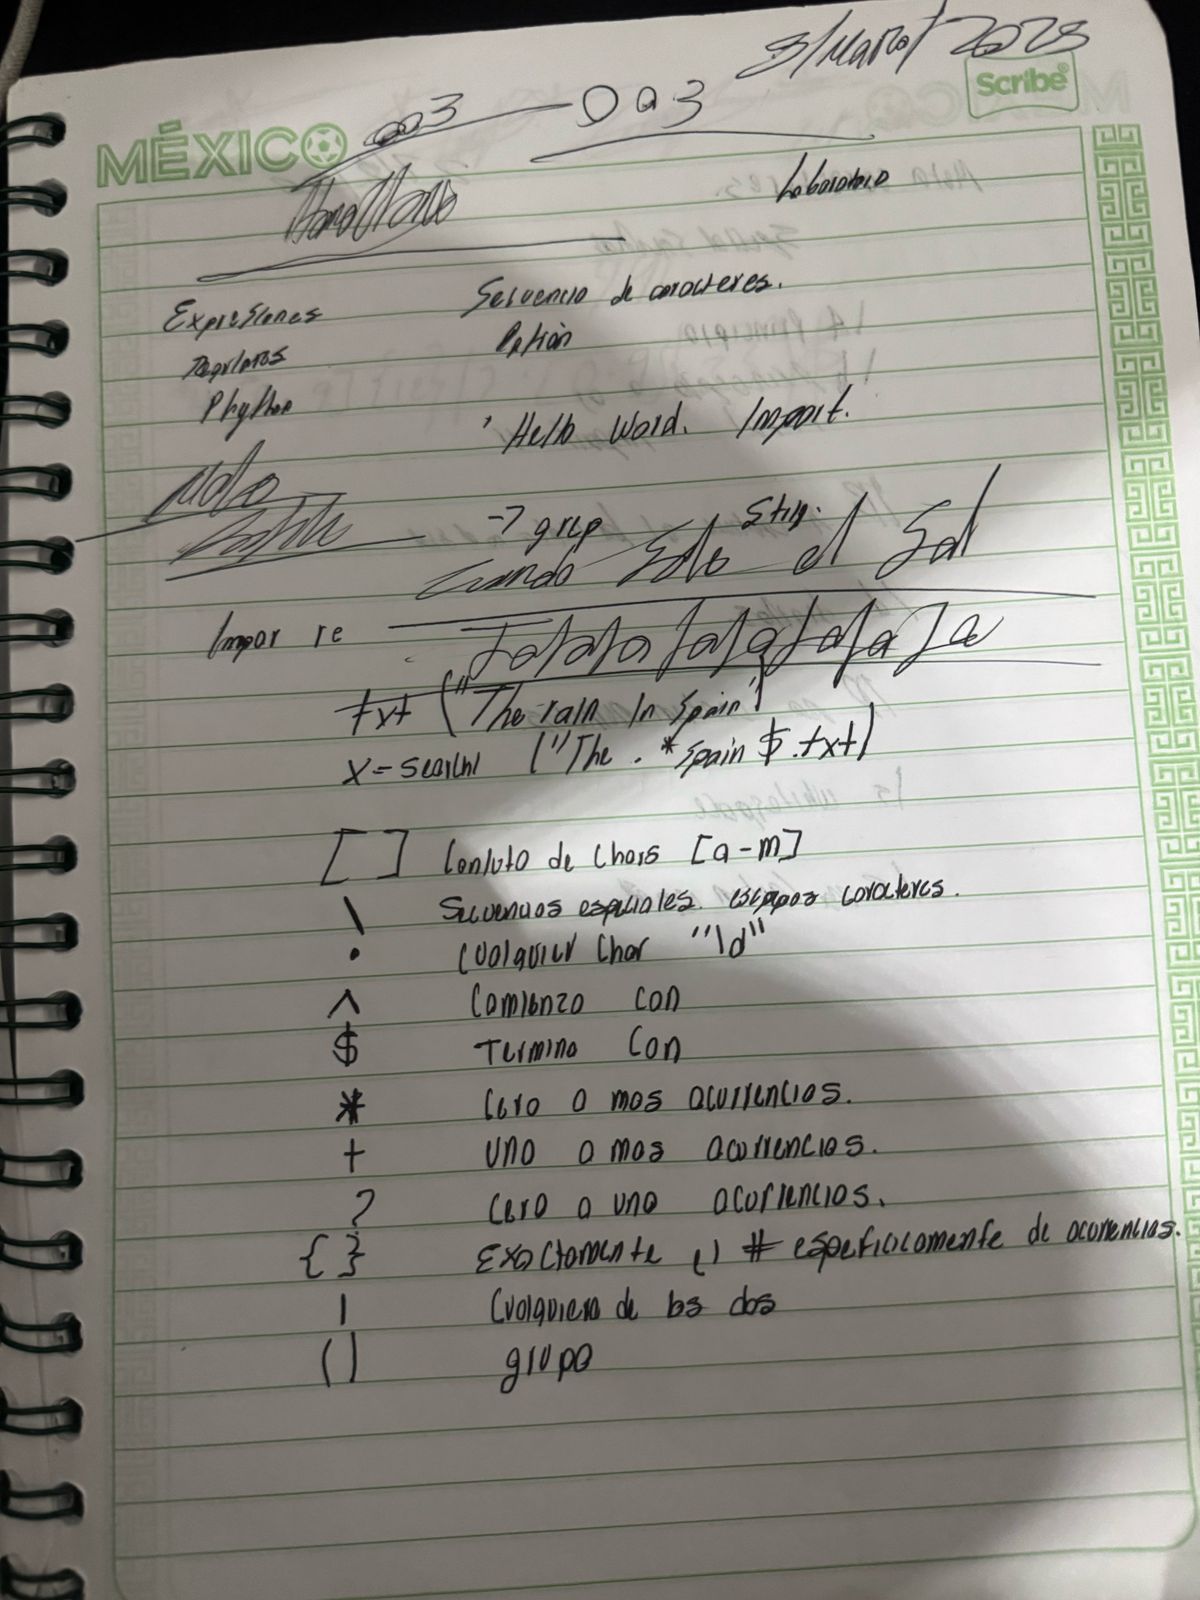 3/Marzo/2025
Scribe®
MÉXICO
Laboratorio
Expresiones Secuencia de caracteres.
Regulares Patrón
Phython "Hello Word. Import.
→ grep String.
Cuando Sale el Sol
Impor re
txt ("The rain In Spain")
X = search ("The . * Spain $ .txt)
[ ] Conjuto de Chars [a-m]
\ Secuencias especiales. escapar caracteres.
. Cualquier Char "\d"
^ Comienzo con
$ Termino Con
* Cero o mas ocurrencias.
+ uno o mas ocurrencias.
? Cero o uno ocurrencias.
{ } Exactamente el # espeficicamente de ocurrencias.
| Cualquiera de los dos
( ) grupo